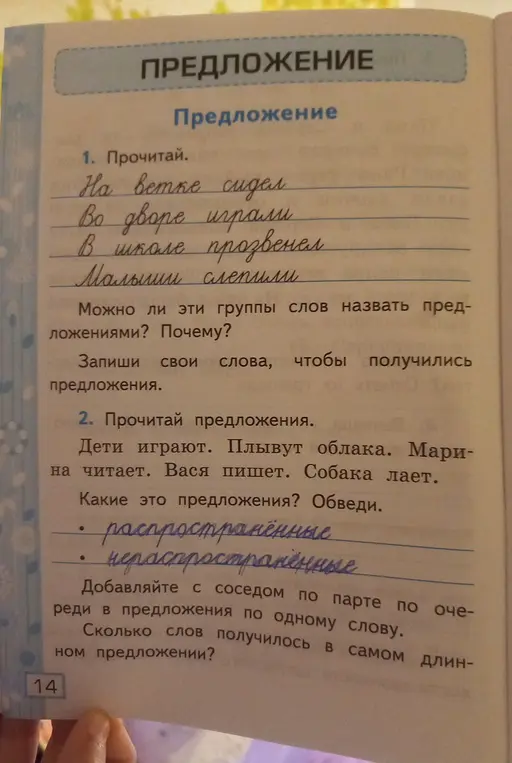 ПРЕДЛОЖЕНИЕ
Предложение
1. Прочитай.
На ветке сидел
Во дворе играли
В школе прозвенел
Малыши слепили
Можно ли эти группы слов назвать пред-
ложениями? Почему?
Запиши свои слова, чтобы получились
предложения.
2. Прочитай предложения.
Дети играют. Плывут облака. Мари-
на читает. Вася пишет. Собака лает.
Какие это предложения? Обведи.
• распространённые
• нераспространённые
Добавляйте с соседом по парте по оче-
реди в предложения по одному слову.
Сколько слов получилось в самом длин-
ном предложении?
14